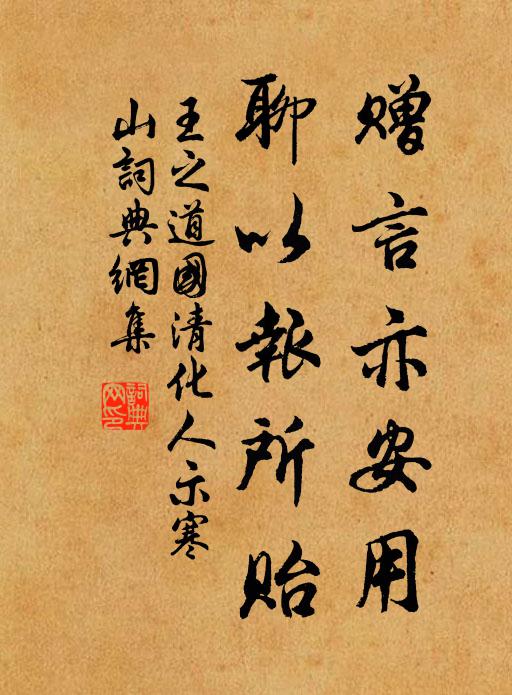 赠言亦安用
聊以報所貽
王之道國清化人示寒
山詞典網集
詞典
网印